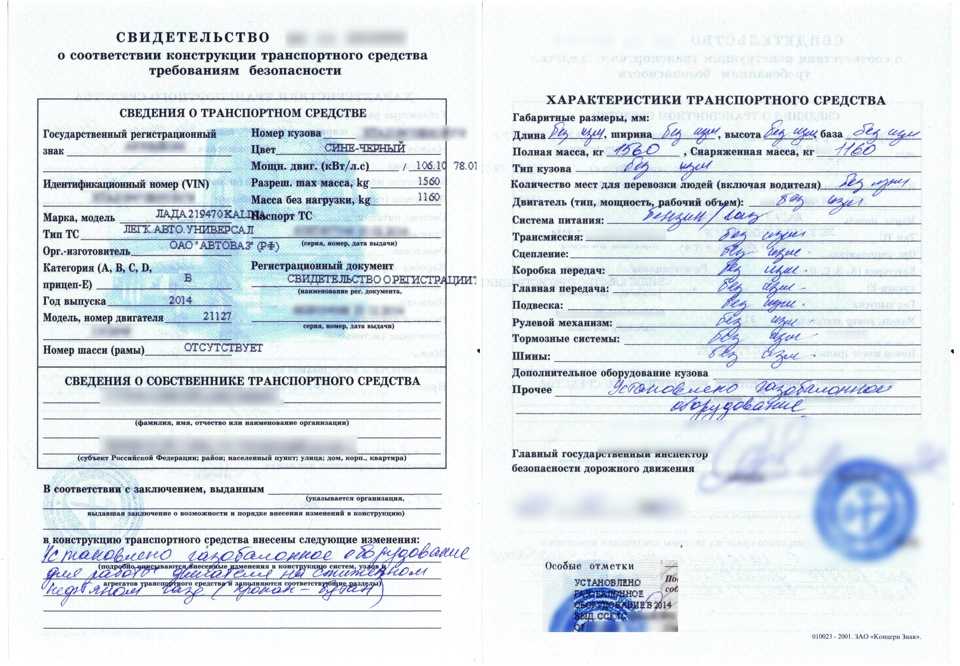 СВИДЕТЕЛЬСТВО
о соответствии конструкции транспортного средства
требованиям безопасности
СВЕДЕНИЯ О ТРАНСПОРТНОМ СРЕДСТВЕ
Государственный регистрационный
знак
Идентификационный номер (VIN)
Марка, модель ЛАДА 219470 KALINA
Тип ТС ЛЕГК.АВТО.УНИВЕРСАЛ
Орг.-изготовитель ОАО "АВТОВАЗ" (РФ)
Категория (A, B, C, D,
прицеп-E) B
Год выпуска 2014
Модель, номер двигателя 21127
Номер шасси (рамы) ОТСУТСТВУЕТ
Номер кузова
Цвет СИНЕ-ЧЕРНЫЙ
Мощн. двиг. (кВт/л.с) / 106.10 78.01
Разреш. max масса, kg 1560
Масса без нагрузки, kg 1160
Паспорт ТС
(серия, номер, дата выдачи)
Регистрационный документ
СВИДЕТЕЛЬСТВО О РЕГИСТРАЦИИ
(наименование рег. документа,
серия, номер, дата выдачи)
СВЕДЕНИЯ О СОБСТВЕННИКЕ ТРАНСПОРТНОГО СРЕДСТВА
(фамилия, имя, отчество или наименование организации)
(субъект Российской Федерации; район; населенный пункт; улица; дом, корп., квартира)
В соответствии с заключением, выданным
(указывается организация,
выдавшая заключение о возможности и порядке внесения изменений в конструкцию)
в конструкцию транспортного средства внесены следующие изменения:
Установлено газобалонное оборудование
(подробно описываются внесенные изменения в конструкцию систем, узлов и
для работы двигателя на сжиженном
агрегатов транспортного средства и заполняются соответствующие разделы)
нефтяном газе (пропан-бутан)
ХАРАКТЕРИСТИКИ ТРАНСПОРТНОГО СРЕДСТВА
Габаритные размеры, мм:
Длина без изм, ширина без изм, высота без изм база без изм
Полная масса, кг 1560, Снаряженная масса, кг 1160
Тип кузова без изм
Количество мест для перевозки людей (включая водителя) без изм
Двигатель (тип, мощность, рабочий объем): без изм
Система питания: Бензин/газ
Трансмиссия: без изм
Сцепление: без изм.
Коробка передач: без изм.
Главная передача: без изм.
Подвеска: без изм.
Рулевой механизм: без изм.
Тормозные системы: без изм.
Шины: без изм.
Дополнительное оборудование кузова
Прочее Установлено газобалонное
оборудование
Главный государственный инспектор
безопасности дорожного движения
Особые отметки
УСТАНОВЛЕНО
ГАЗОБАЛОННОЕ
ОБОРУДОВАНИЕ В 2014
010023 - 2001. ЗАО «Концерн Знак».